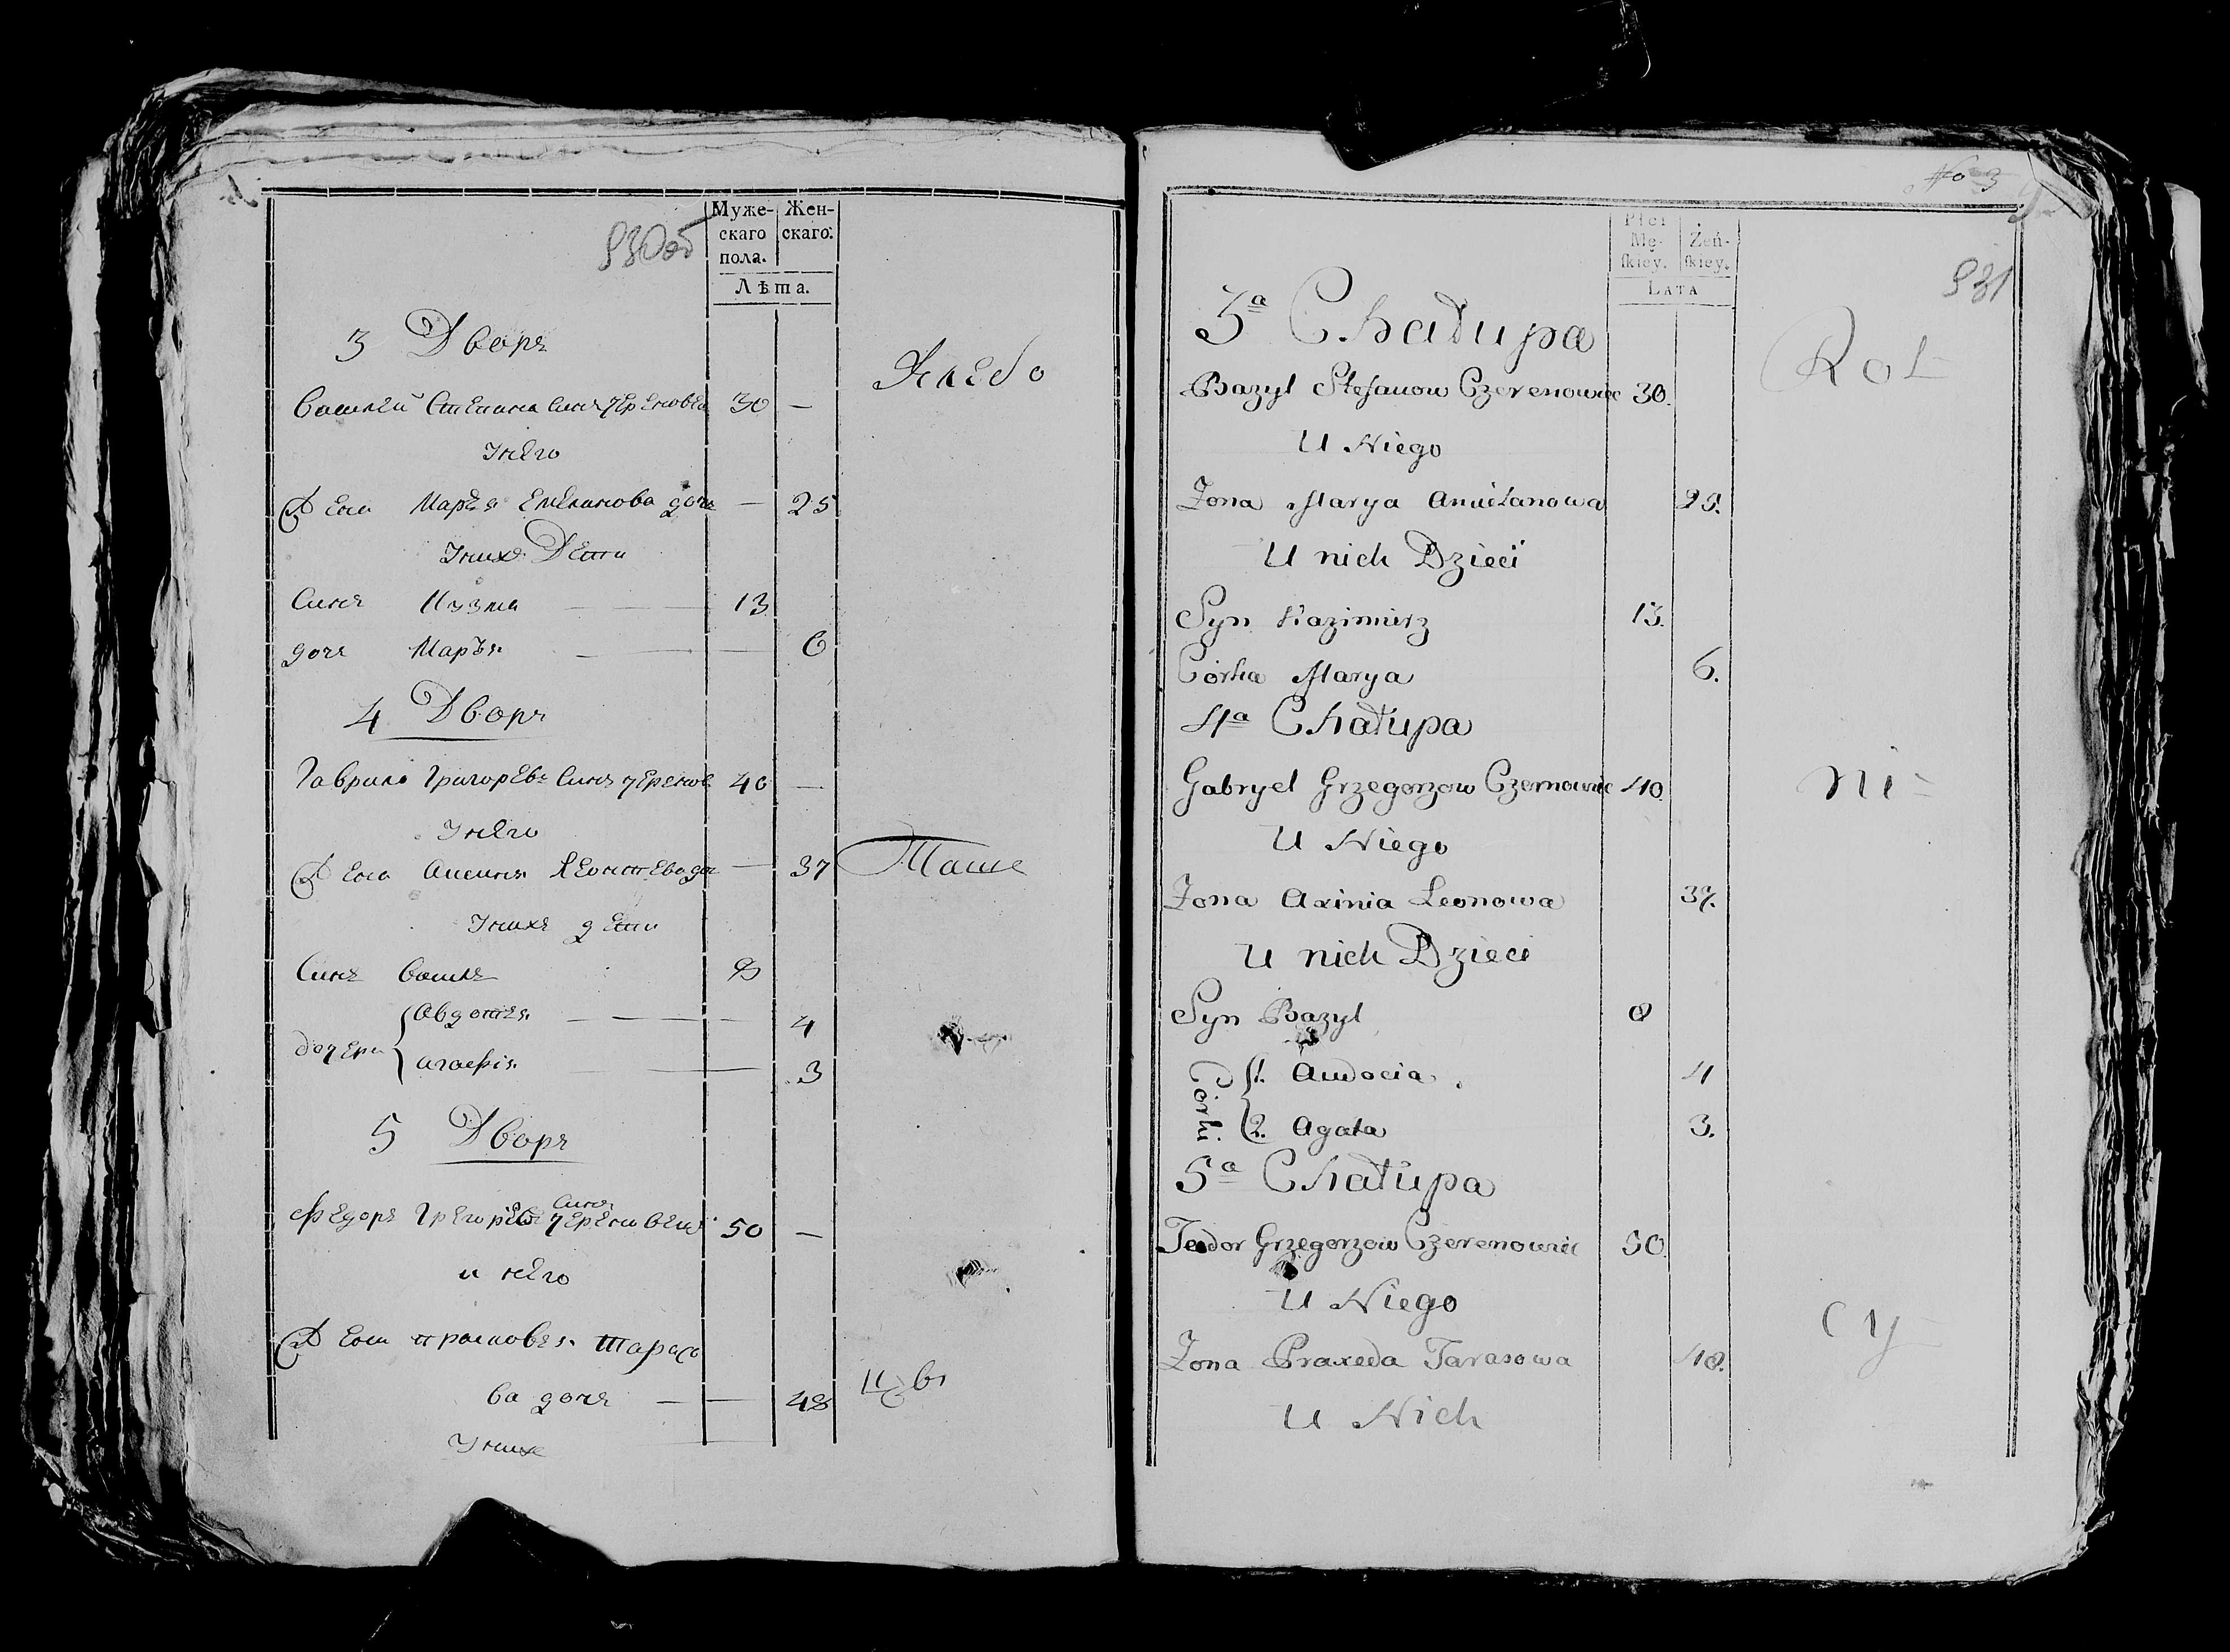 930об
Муже-
скаго
пола.
Жен-
скаго.
Лѣта.
3 Дворъ
Хлебо
Василей Степанов Синъ Черенове 30 —
У него
Жена Маръя Емелянова дочъ — 25
У нихъ Дети
Синъ Кузма 13
дочъ Маръя 6
4 Дворъ
Гаврило Григоревъ Синъ Черенов 40 —
У него
Жена Аксиня Леонтева до — 37
Паше
У нихъ дети
Синъ Василъ 8
дочери { Авдотъя 4
Агафія 3
5 Дворъ
Федоръ Григоревъ Синъ Череновец 50 —
и него
Жена Прасковъя Тарасо
ва дочъ — 48
цы
У них
No 3
931
Płci
Mę-
ſkiey.
Żeń-
ſkiey.
LATA
3a Chałupa
Rol
Bazyl Stefanow Czerenowiec 30.
U Niego
Żona Marya Amielanowa 25.
U nich Dzieci
Syn Kazimirz 13.
Córka Marya 6.
4a Chałupa
Gabryel Grzegorzow Czernowiec 40.
ni
U Niego
Żona Axinia Leonowa 37.
U nich Dzieci
Syn Bazyl 8
Córki { 1. Audocia 4
2. Agata 3.
5a Chałupa
Teodor Grzegorzow Czerenowiec 50.
U Niego
cy
Żona Praxeda Tarasowa 48.
U Nich